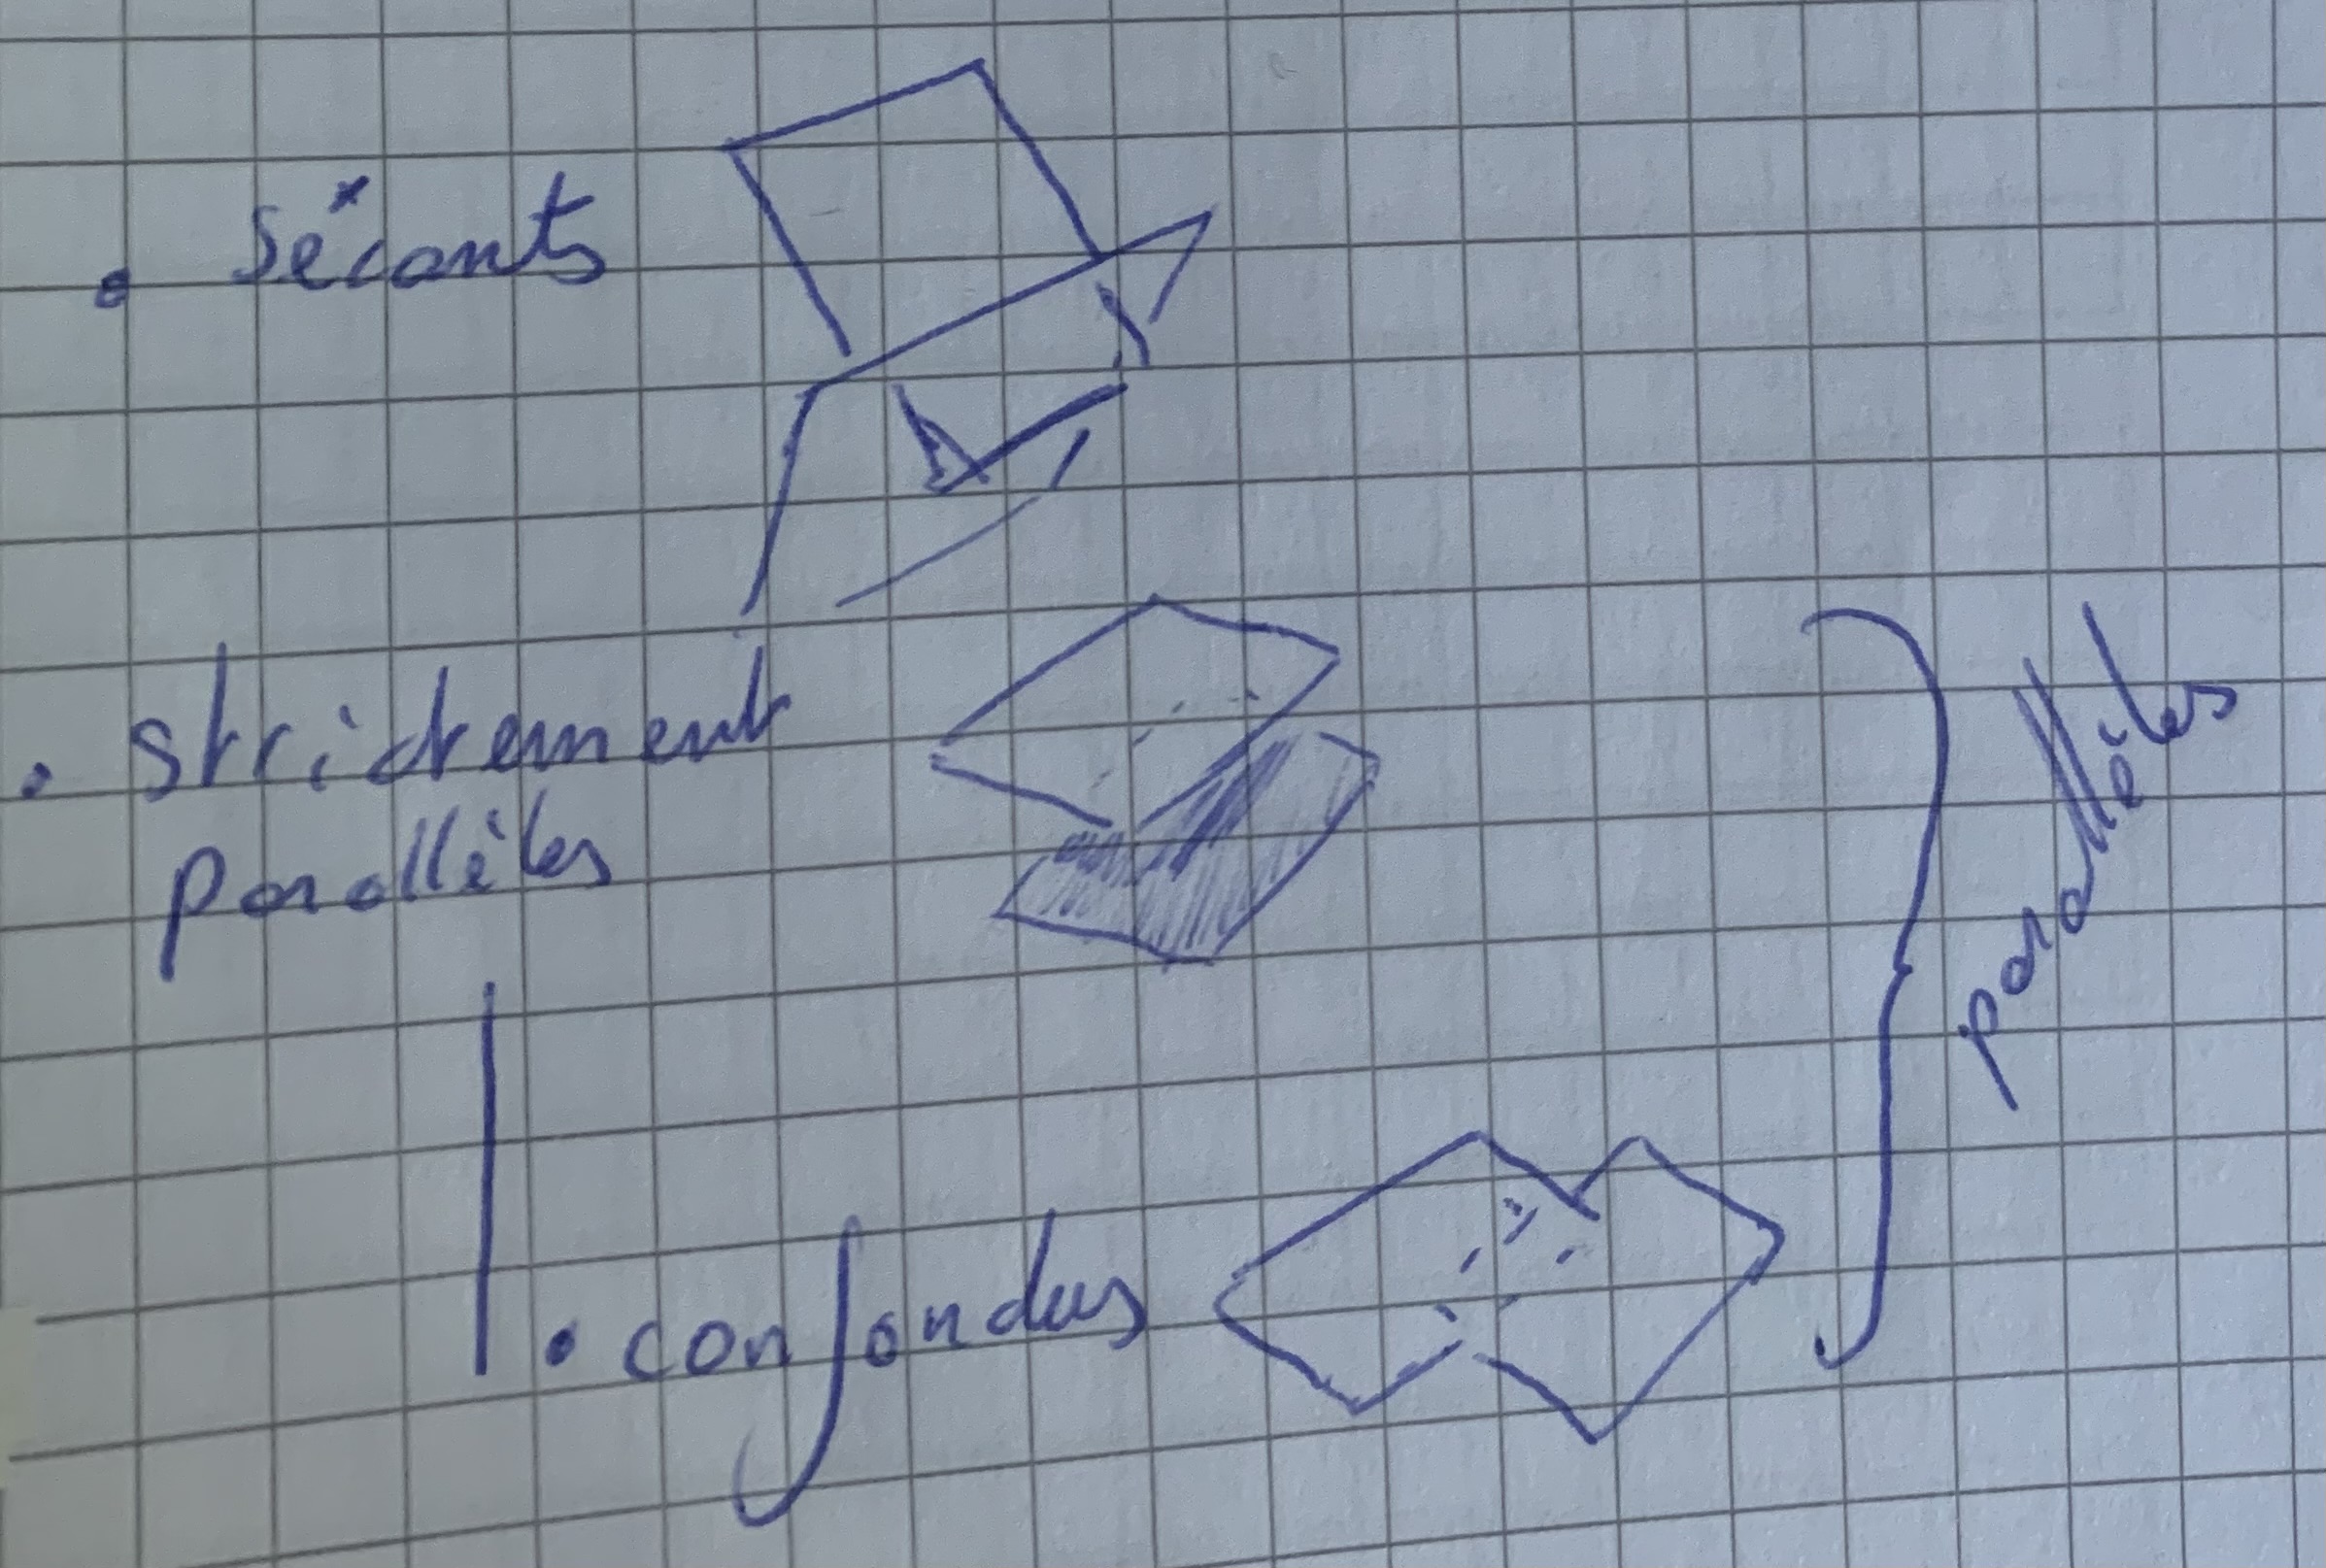 . sécants
. strictement
parallèles
parallèles
. confondus